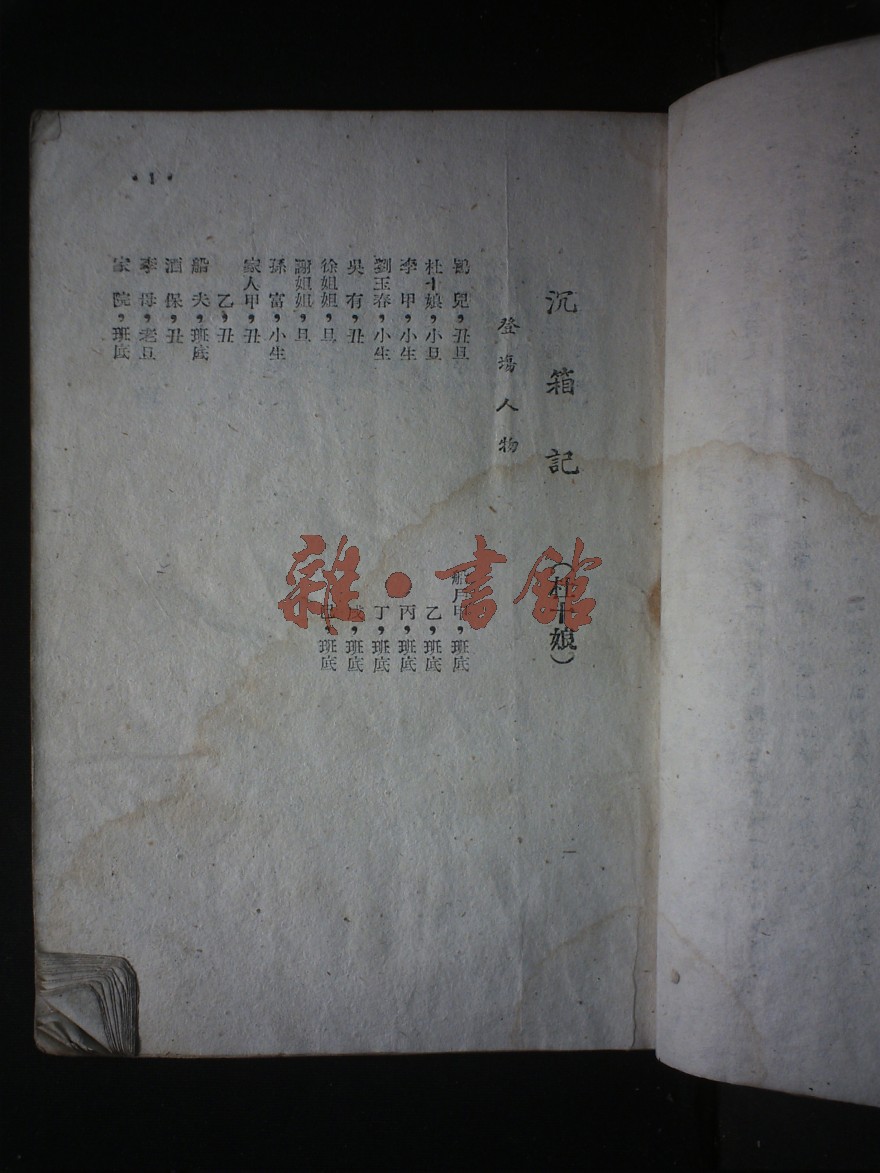 沉箱記（杜十娘）
登場人物
鴇兒，丑旦
杜十娘，小旦
李甲，小生
劉玉春，小生
吳有，丑
徐姐姐，旦
謝姐姐，旦
孫富，小生
家人甲，丑
乙，丑
船夫，班底
酒保，丑
李母，老旦
家院，班底
船戶甲，班底
乙，班底
丙，班底
丁，班底
戊，班底
己，班底
·1·
雜·書館